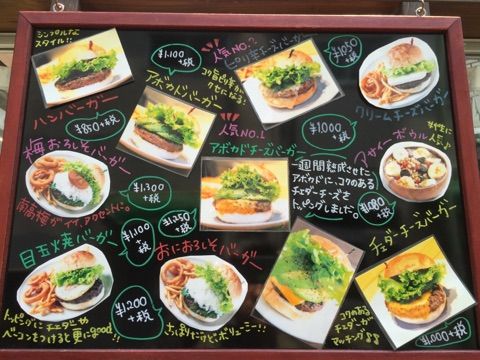 シンプルな
スタイル!!
ハンバーガー
¥850+税
¥1,100
+税
アボカドバーガー
人気NO.2
ピリ辛チーズバーガー
¥1,000
+税
¥1050
+税
クリームチーズバーガー
梅おろしそバーガー
南高梅がイイ、アクセントに。
¥1,300
+税
人気NO.1
アボカドチーズバーガー
¥1,250
+税
一週間熟成させた
アボカドに、コクのある
チェダーチーズを
トッピングしました。
アサイーボウル
女性に
人気♪
¥1,080
+税
目玉焼バーガー
¥1,100
+税
トッピングにチェダーや
ベーコンをつけると更にgood!!
おにおろしそバーガー
¥1,200
+税
さっぱりだけど、ボリューミー!!
チェダーチーズバーガー
コクのある
チェダーが
マッチング♪
¥1,000+税